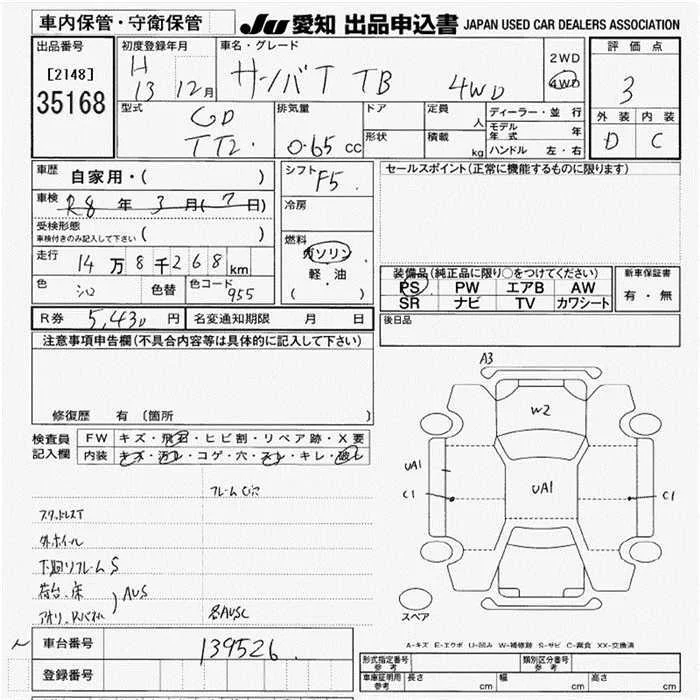 車内保管・守衛保管
JU 愛知 出品申込書 JAPAN USED CAR DEALERS ASSOCIATION
出品番号
[2148]
35168
初度登録年月
H
13 12月
車名・グレード
サンバT TB 4WD
2WD
4WD
評価点
3
外装 内装
D C
型式
GD
TT2
排気量
0.65 cc
ドア
形状
定員
人
積載
kg
ディーラー・並行
モデル年式 年
ハンドル 左・右
車歴
自家用・( )
車検
R8 年 3 月(7 日)
受検形態
車検付きのみ記入して下さい ( )
走行
14万8千268km
色
シロ
色替
色コード
955
シフト
F5.
冷房
燃料
ガソリン
軽・油
( )
セールスポイント(正常に機能するものに限ります)
装備品(純正品に限り○をつけてください)
PS PW エアB AW
SR ナビ TV カワシート
新車保証書
有・無
R券 5,430 円 名変通知期限 月 日
後日品
注意事項申告欄(不具合内容等は具体的に記入して下さい)
修復歴 有 〔箇所 〕
検査員記入欄
FW キズ・飛石・ヒビ割・リペア跡・X要
内装 キズ・汚レ・コゲ・穴・スレ・キレ・破レ
スタッドレスT
外ホイール
下廻リフレームS
荷台・床
AUS
各AUSC
A3
W2
UA1
UA1
C1
C1
スペア
A-キズ E-エクボ U-凹み W-補修跡 S-サビ C-腐食 XX-交換済
車台番号
139526
登録番号
形式指定番号 参考
類別区分番号 参考
車庫証明用 参考
長さ cm 幅 cm 高さ cm